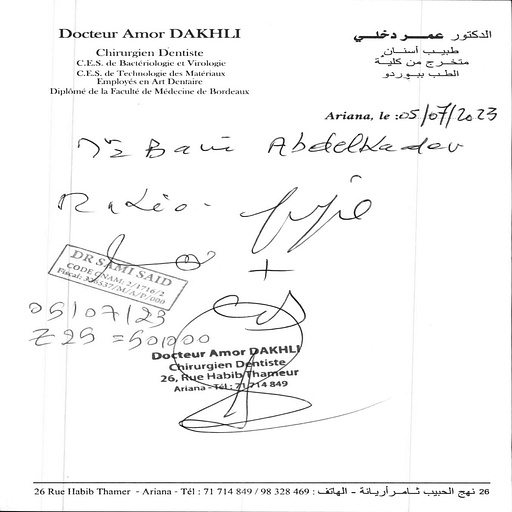 Docteur Amor DAKHLI
Chirurgien Dentiste
C.E.S. de Bactériologie et Virologie
C.E.S. de Technologie des Matériaux
Employés en Art Dentaire
Diplômé de la Faculté de Médecine de Bordeaux
الدكتور عمر دخلي
طبيب أسنان
متخرج من كلية
الطب ببوردو
Ariana, le : 05/07/2023
Abdelkader
Radio
DR SAMI SAID
CODE CNAM: 2/1716/2
05/07/23
Z25 = 50,000
Docteur Amor DAKHLI
Chirurgien Dentiste
26, Rue Habib Thameur
Ariana - Tél : 71 714 849
26 Rue Habib Thamer - Ariana - Tél : 71 714 849 / 98 328 469 : الهاتف - أريانة ثامر الحبيب نهج 26